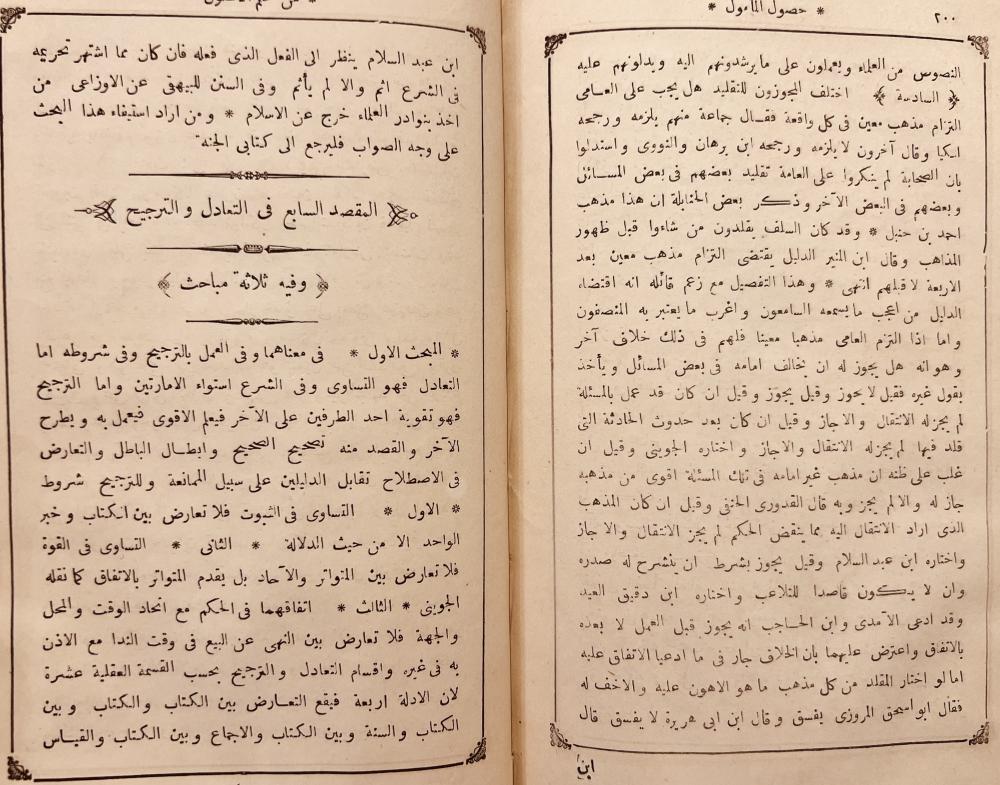 ٢٠٠
* حصول المأمول *
النصوص من العلماء ويعملون على ما يرشدونهم اليه ويدلونهم عليه
﴿ السادسة ﴾ اختلف المجوزون للتقليد هل يجب على العامى
التزام مذهب معين فى كل واقعة فقال جماعة منهم يلزمه ورجحه
الكيا وقال آخرون لا يلزمه ورجحه ابن برهان والنووى واستدلوا
بان الصحابة لم ينكروا على العامة تقليد بعضهم فى بعض المسائل
وبعضهم فى البعض الآخر وذكر بعض الحنابلة ان هذا مذهب
احمد بن حنبل * وقد كان السلف يقلدون من شاءوا قبل ظهور
المذاهب وقال ابن المنير الدليل يقتضى التزام مذهب معين بعد
الاربعة لا قبلهم انتهى * وهذا التفصيل مع زعم قائله انه اقتضاء
الدليل من اعجب ما يسمعه السامعون واغرب ما يعتبر به المنصفون
واما اذا التزم العامى مذهبا معينا فلهم فى ذلك خلاف آخر
وهو انه هل يجوز له ان يخالف امامه فى بعض المسائل ويأخذ
بقول غيره فقيل لا يجوز وقيل يجوز وقيل ان كان قد عمل بالمسئلة
لم يجز له الانتقال والا جاز وقيل ان كان بعد حدوث الحادثة التى
قلد فيها لم يجز له الانتقال والا جاز واختاره الجوينى وقيل ان
غلب على ظنه ان مذهب غير امامه فى تلك المسئلة اقوى من مذهبه
جاز له والا لم يجز وبه قال القدورى الحنفى وقيل ان كان المذهب
الذى اراد الانتقال اليه مما ينقض الحكم لم يجز الانتقال والا جاز
واختاره ابن عبد السلام وقيل يجوز بشرط ان ينشرح له صدره
وان لا يكون قاصدا للتلاعب واختاره ابن دقيق العيد
وقد ادعى الآمدى وابن الحاجب انه يجوز قبل العمل لا بعده
بالاتفاق واعترض عليهما بان الخلاف جار فى ما ادعيا الاتفاق عليه
اما لو اختار المقلد من كل مذهب ما هو الاهون عليه والاخف له
فقال ابو اسحق المروزى يفسق وقال ابن ابى هريرة لا يفسق قال
ابن
ابن عبد السلام ينظر الى الفعل الذى فعله فان كان مما اشتهر تحريمه
فى الشرع اثم والا لم يأثم وفى السنن للبيهقى عن الاوزاعى من
اخذ بنوادر العلماء خرج عن الاسلام * ومن اراد استيفاء هذا البحث
على وجه الصواب فليرجع الى كتابى الجنه
المقصد السابع فى التعادل والترجيح
﴿ وفيه ثلاثة مباحث ﴾
* المبحث الاول * فى معناهما وفى العمل بالترجيح وفى شروطه اما
التعادل فهو التساوى وفى الشرع استواء الامارتين واما الترجيح
فهو تقوية احد الطرفين على الآخر فيعلم الاقوى فيعمل به ويطرح
الآخر والقصد منه تصحيح الصحيح وابطال الباطل والتعارض
فى الاصطلاح تقابل الدليلين على سبيل الممانعة وللترجيح شروط
* الاول * التساوى فى الثبوت فلا تعارض بين الكتاب وخبر
الواحد الا من حيث الدلالة * الثانى * التساوى فى القوة
فلا تعارض بين المتواتر والآحاد بل يقدم المتواتر بالاتفاق كما نقله
الجوينى * الثالث * اتفاقهما فى الحكم مع اتحاد الوقت والمحل
والجهة فلا تعارض بين النهى عن البيع فى وقت الندا مع الاذن
به فى غيره واقسام التعادل والترجيح بحسب القسمة العقلية عشرة
لان الادلة اربعة فيقع التعارض بين الكتاب والكتاب وبين
الكتاب والسنة وبين الكتاب والاجماع وبين الكتاب والقياس